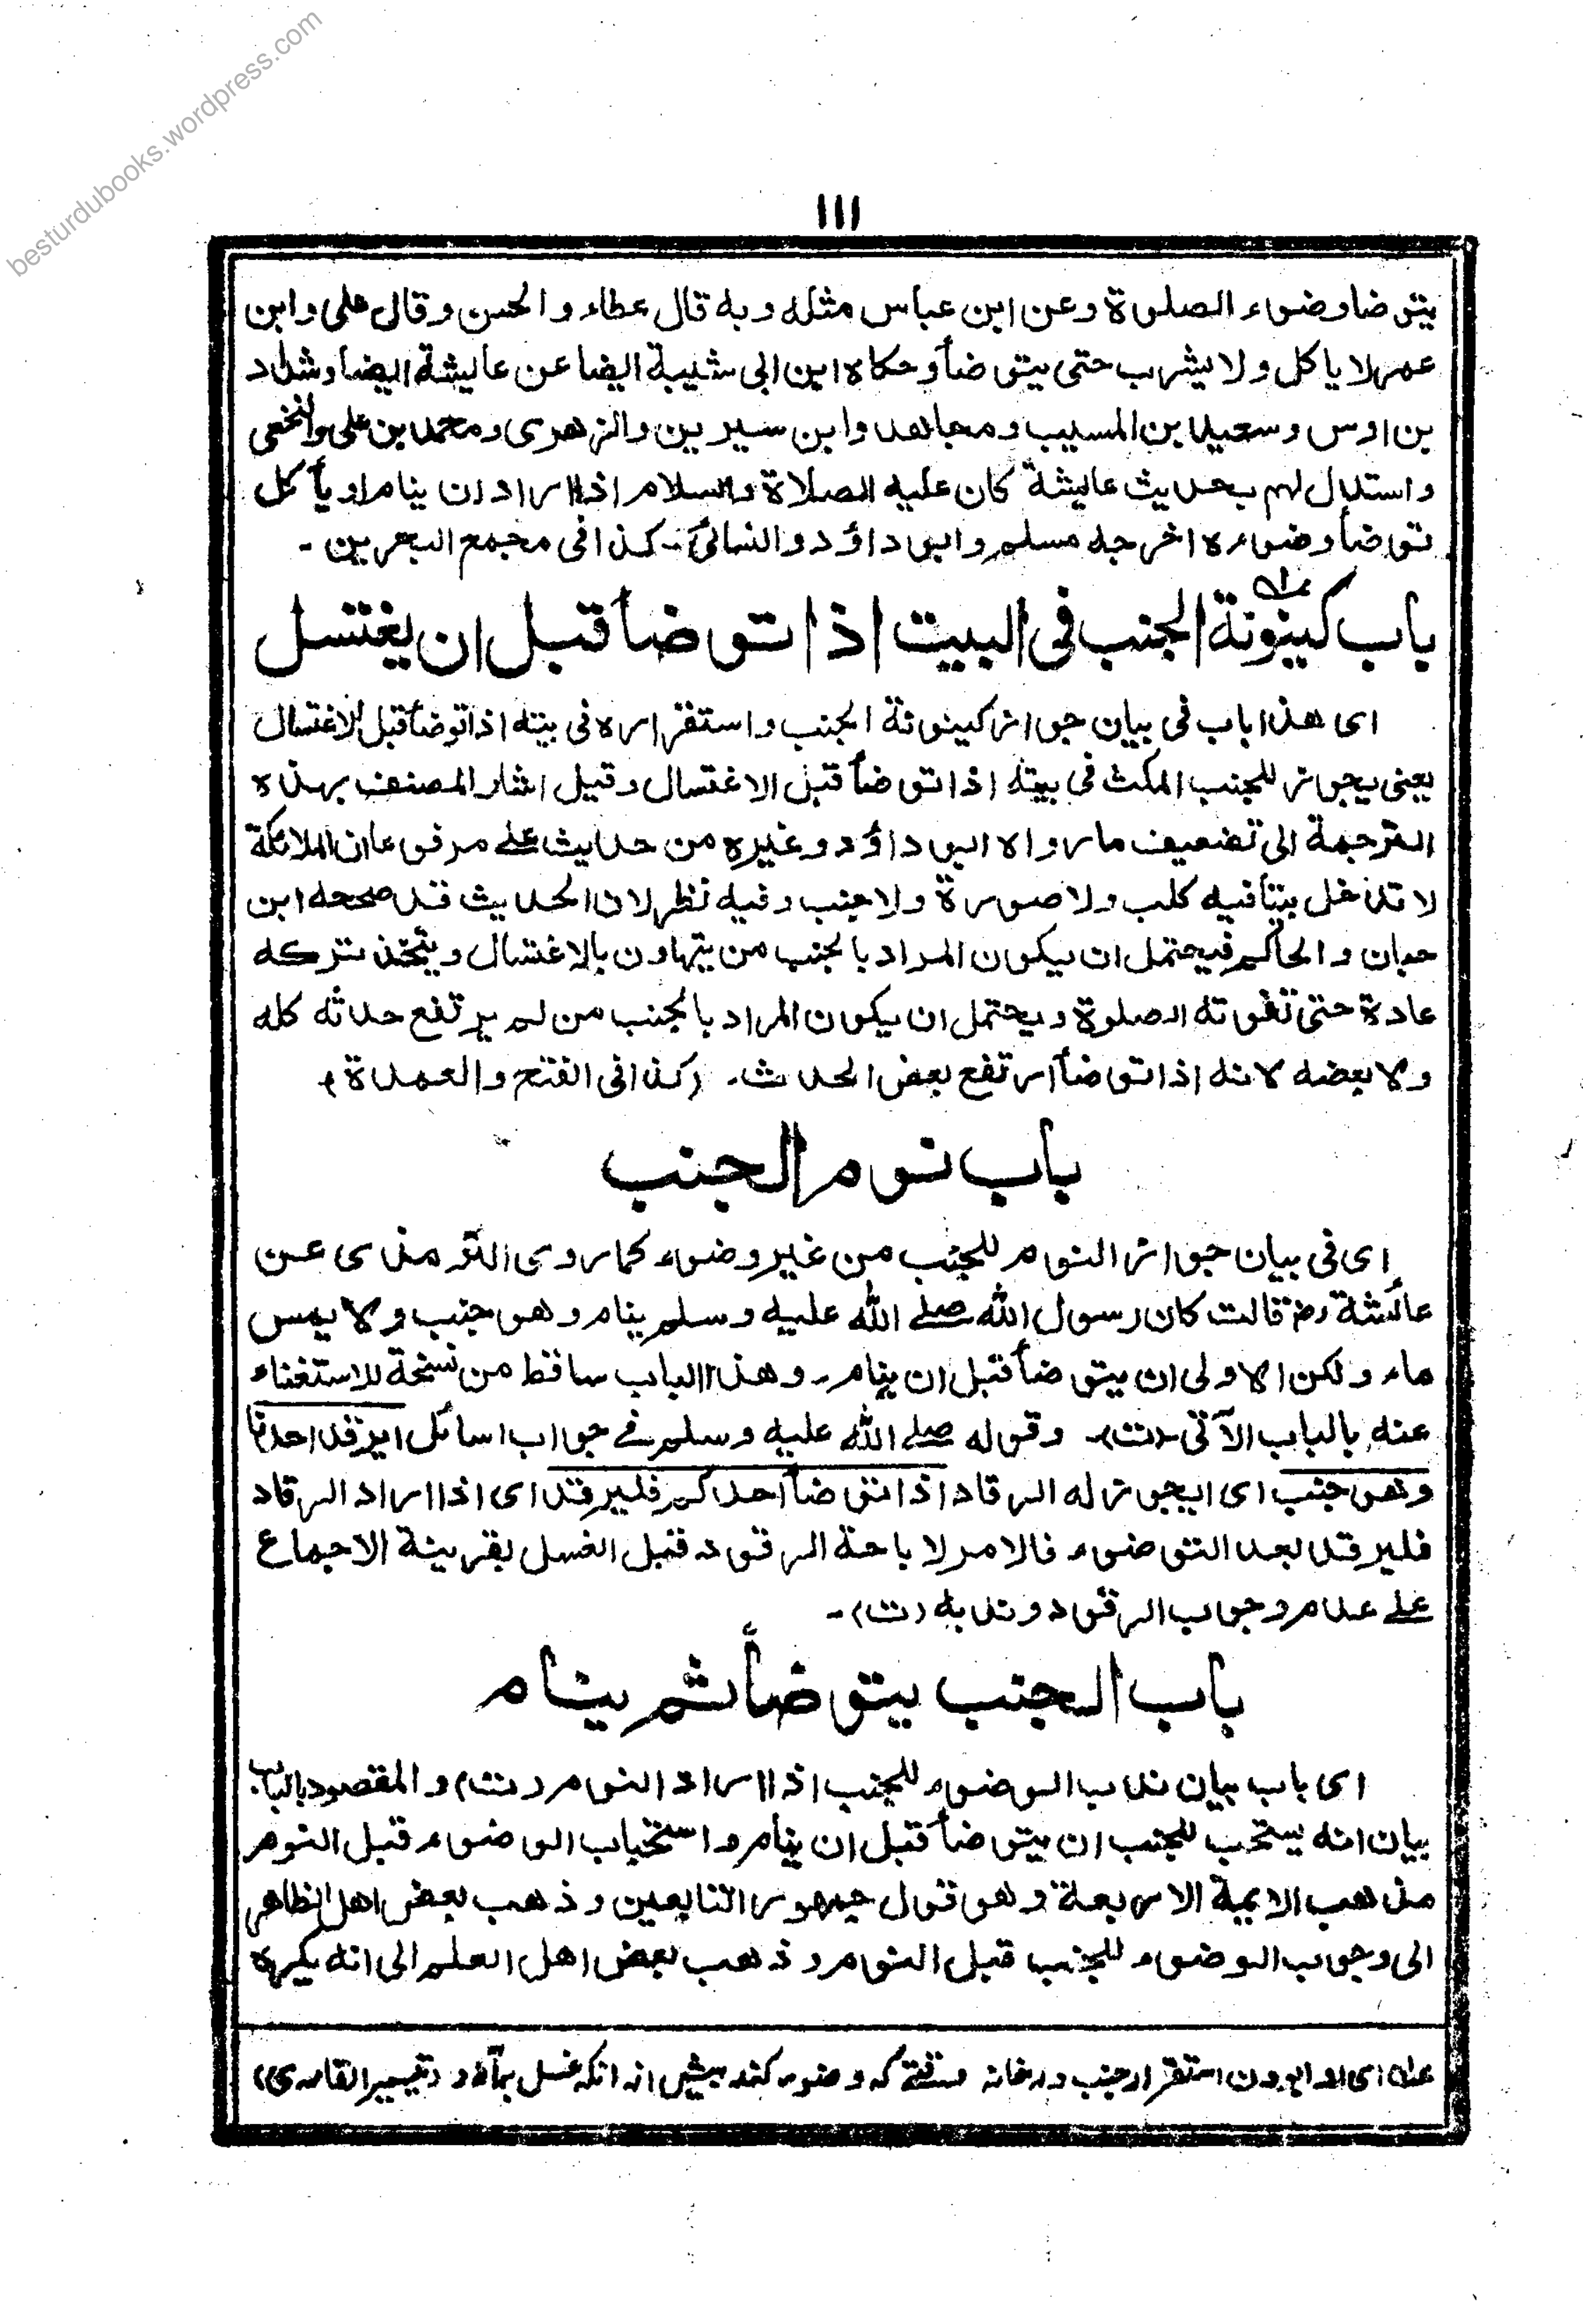 besturdubooks.wordpress.com
١١١
يتوضا وضوء الصلوة وعن ابن عباس مثله وبه قال عطاء والحسن وقال على وابن
عمر لا ياكل ولا يشرب حتى يتوضأ وحكاه ابن ابى شيبة ايضا عن عايشة ايضا وشداد
بن اوس وسعيد بن المسيب ومجاهد وابن سيرين والزهرى ومحمد بن على والنخعى
واستدل لهم بحديث عايشة كان عليه الصلاة والسلام اذا اراد ان ينام او يأكل
توضأ وضوءه اخرجه مسلم وابو داؤد والنسائى - كذا فى مجمع البحرين -
باب كينونة الجنب فى البيت اذا توضأ قبل ان يغتسل
اى هذا باب فى بيان جواز كينونة الجنب واستقراره فى بيته اذا توضأ قبل الاغتسال
يعنى يجوز للجنب المكث فى بيته اذا توضأ قبل الاغتسال وقيل اشار المصنف بهذه
الترجمة الى تضعيف ما رواه ابو داؤد وغيره من حديث على مرفوعا ان الملائكة
لا تدخل بيتا فيه كلب ولا صورة ولا جنب وفيه نظر لان الحديث قد صححه ابن
حبان والحاكم فيحتمل ان يكون المراد بالجنب من يتهاون بالاغتسال ويتخذ تركه
عادة حتى تفوته الصلوة ويحتمل ان يكون المراد بالجنب من لم يرتفع حدثه كله
ولا بعضه لانه اذا توضأ ارتفع بعض الحدث. (كذا فى الفتح والعمدة)
باب نوم الجنب
اى فى بيان جواز النوم للجنب من غير وضوء كما روى الترمذى عن
عائشة رض قالت كان رسول الله صلے الله عليه وسلم ينام وهو جنب ولا يمس
ماء ولكن الاولى ان يتوضأ قبل ان ينام - وهذا الباب ساقط من نسخة للاستغناء
عنه بالباب الآتى (ت)- وقوله صلے الله عليه وسلم فے جواب السائل ايرقد احدنا
وهو جنب اى ايجوز له الرقاد اذا توضأ احدكم فليرقد اى اذا اراد الرقاد
فليرقد بعد التوضوء فالامر لاباحة الرقود قبل الغسل بقرينة الاجماع
علے عدم وجوب الرقود وندبه (ت)-
باب الجنب يتوضأ ثم ينام
اى باب بيان ندب الوضوء للجنب اذا اراد النوم (ت) والمقصود بالباب
بيان انه يستحب للجنب ان يتوضأ قبل ان ينام واستحباب الوضوء قبل النوم
مذهب الايمة الاربعة وهو قول جمهور التابعين وذهب بعض اهل الظاهر
الى وجوب الوضوء للجنب قبل النوم وذهب بعض اهل العلم الى انه يكره
عله اى استقرار جنب در خانه وقتے كه وضوء كند پيش از انكه غسل بكند (تيسير القارى)